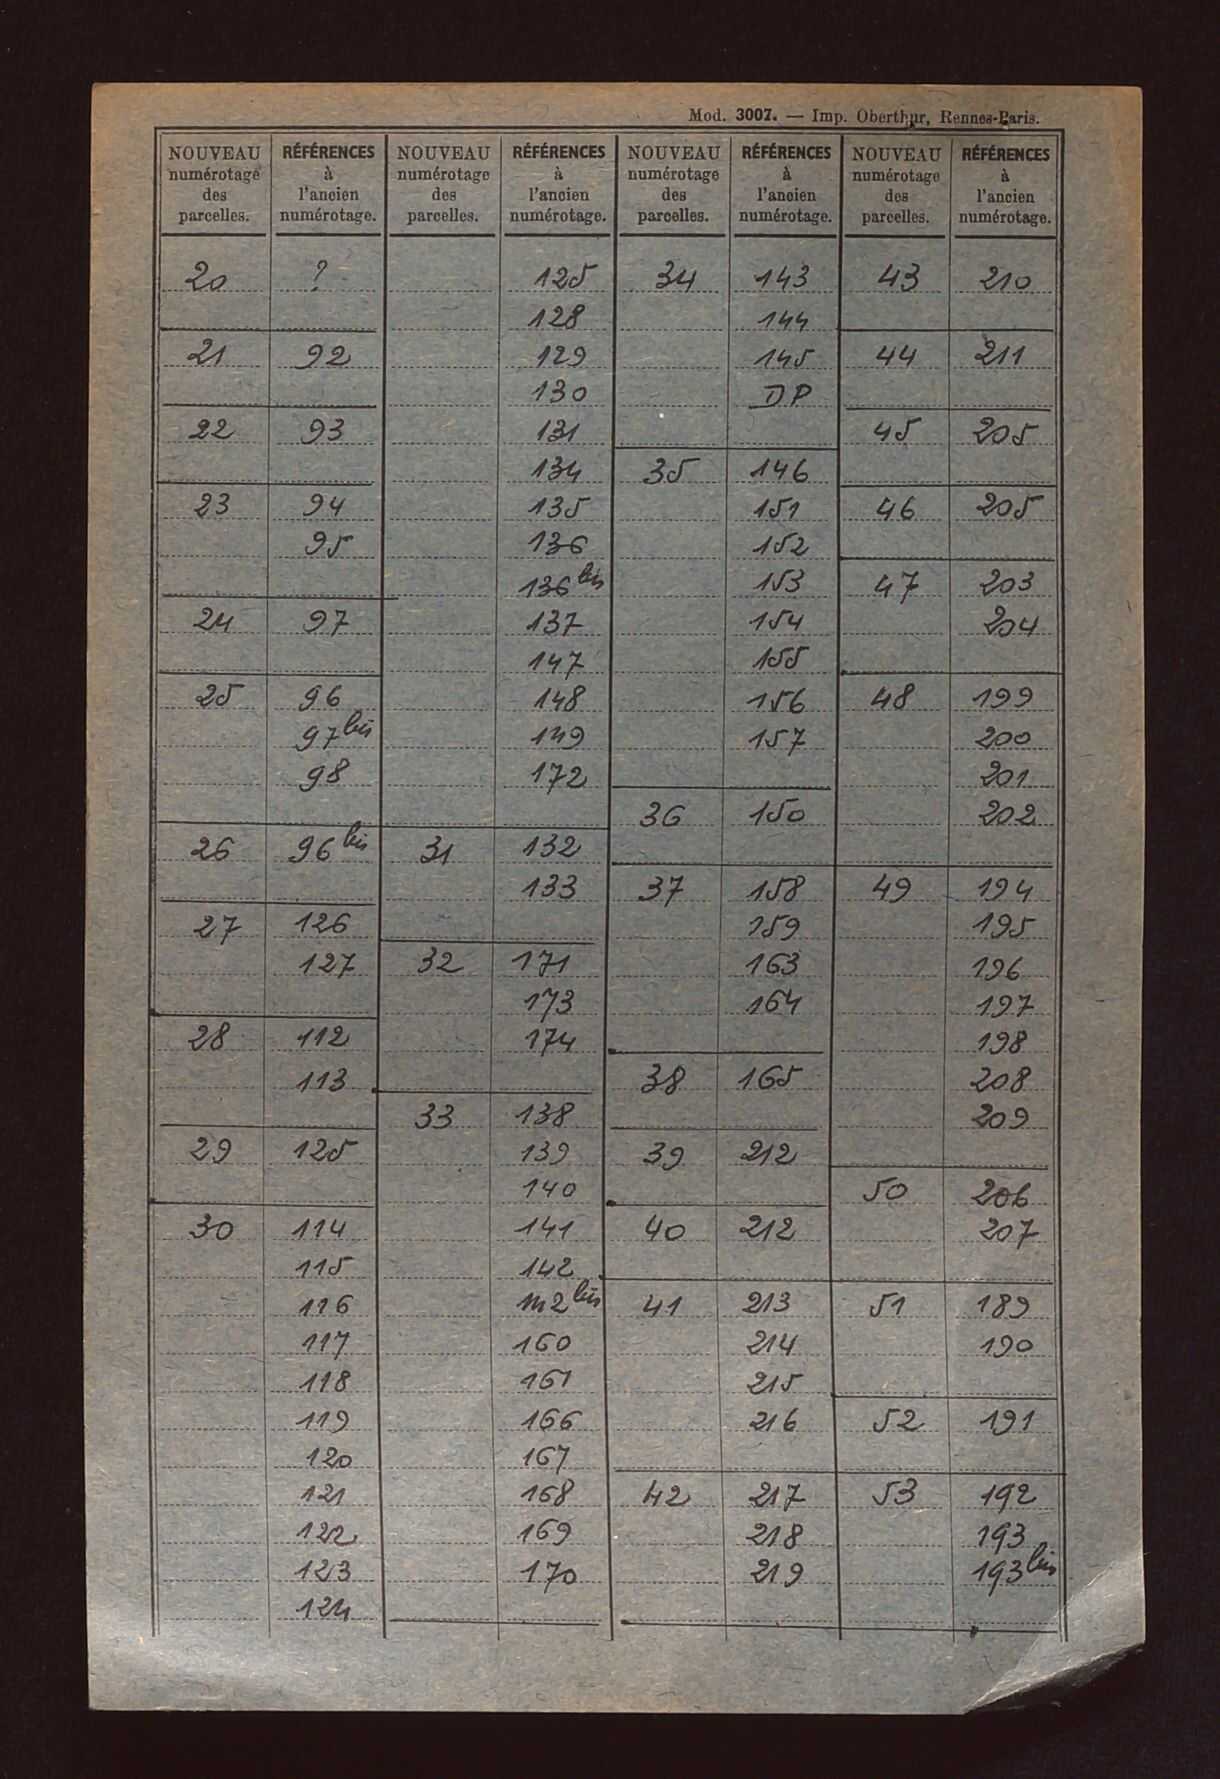 Mod. 3007. — Imp. Oberthur, Rennes-Paris.
NOUVEAU numérotage des parcelles.
RÉFÉRENCES à l'ancien numérotage.
20 ?
21 92
22 93
23 94
95
24 97
25 96
97 bis
98
26 96 bis
27 126
127
28 112
113
29 125
30 114
115
116
117
118
119
120
121
122
123
124
NOUVEAU numérotage des parcelles.
RÉFÉRENCES à l'ancien numérotage.
125
128
129
130
131
134
135
136
136 bis
137
147
148
149
172
31 132
133
32 171
173
174
33 138
139
140
141
142
142 bis
160
161
166
167
168
169
170
NOUVEAU numérotage des parcelles.
RÉFÉRENCES à l'ancien numérotage.
34 143
144
145
DP
35 146
151
152
153
154
155
156
157
36 150
37 158
159
163
164
38 165
39 212
40 212
41 213
214
215
216
42 217
218
219
NOUVEAU numérotage des parcelles.
RÉFÉRENCES à l'ancien numérotage.
43 210
44 211
45 205
46 205
47 203
204
48 199
200
201
202
49 194
195
196
197
198
208
209
50 206
207
51 189
190
52 191
53 192
193
193 bis